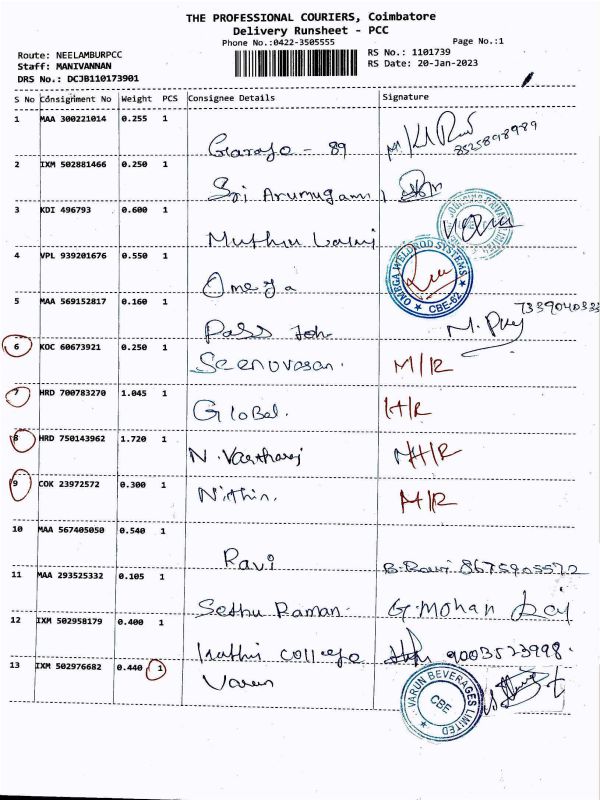 THE PROFESSIONAL COURIERS, Coimbatore
Delivery Runsheet - PCC
Phone No.:0422-3505555 Page No.:1
Route: NEELAMBURPCC RS No.: 1101739
Staff: MANIVANNAN RS Date: 20-Jan-2023
DRS No.: DCJB110173901
S No Consignment No Weight PCS Consignee Details Signature
1 MAA 300221014 0.255 1
Garage - 89 8525898989
2 IXM 502881466 0.250 1
Sri Arumugam
3 KDI 496793 0.600 1
Muthu
4 VPL 939201676 0.550 1
Omega OMEGA WELDROD SYSTEMS CBE-62
5 MAA 569152817 0.160 1
Pass 7339040333
6 KOC 60673921 0.250 1
Seenuvasan. M/R
7 HRD 700783270 1.045 1
Global. H/R
8 HRD 750143962 1.720 1
N. Vartharaj H/R
9 COK 23972572 0.300 1
Nithin. H/R
10 MAA 567405050 0.540 1
Ravi B. Ravi 8675905572
11 MAA 293525332 0.105 1
Sethu Raman. G. Mohan
12 IXM 502958179 0.400 1
College 9003523998.
13 IXM 502976682 0.440 1
Varun VARUN BEVERAGES LIMITED CBE